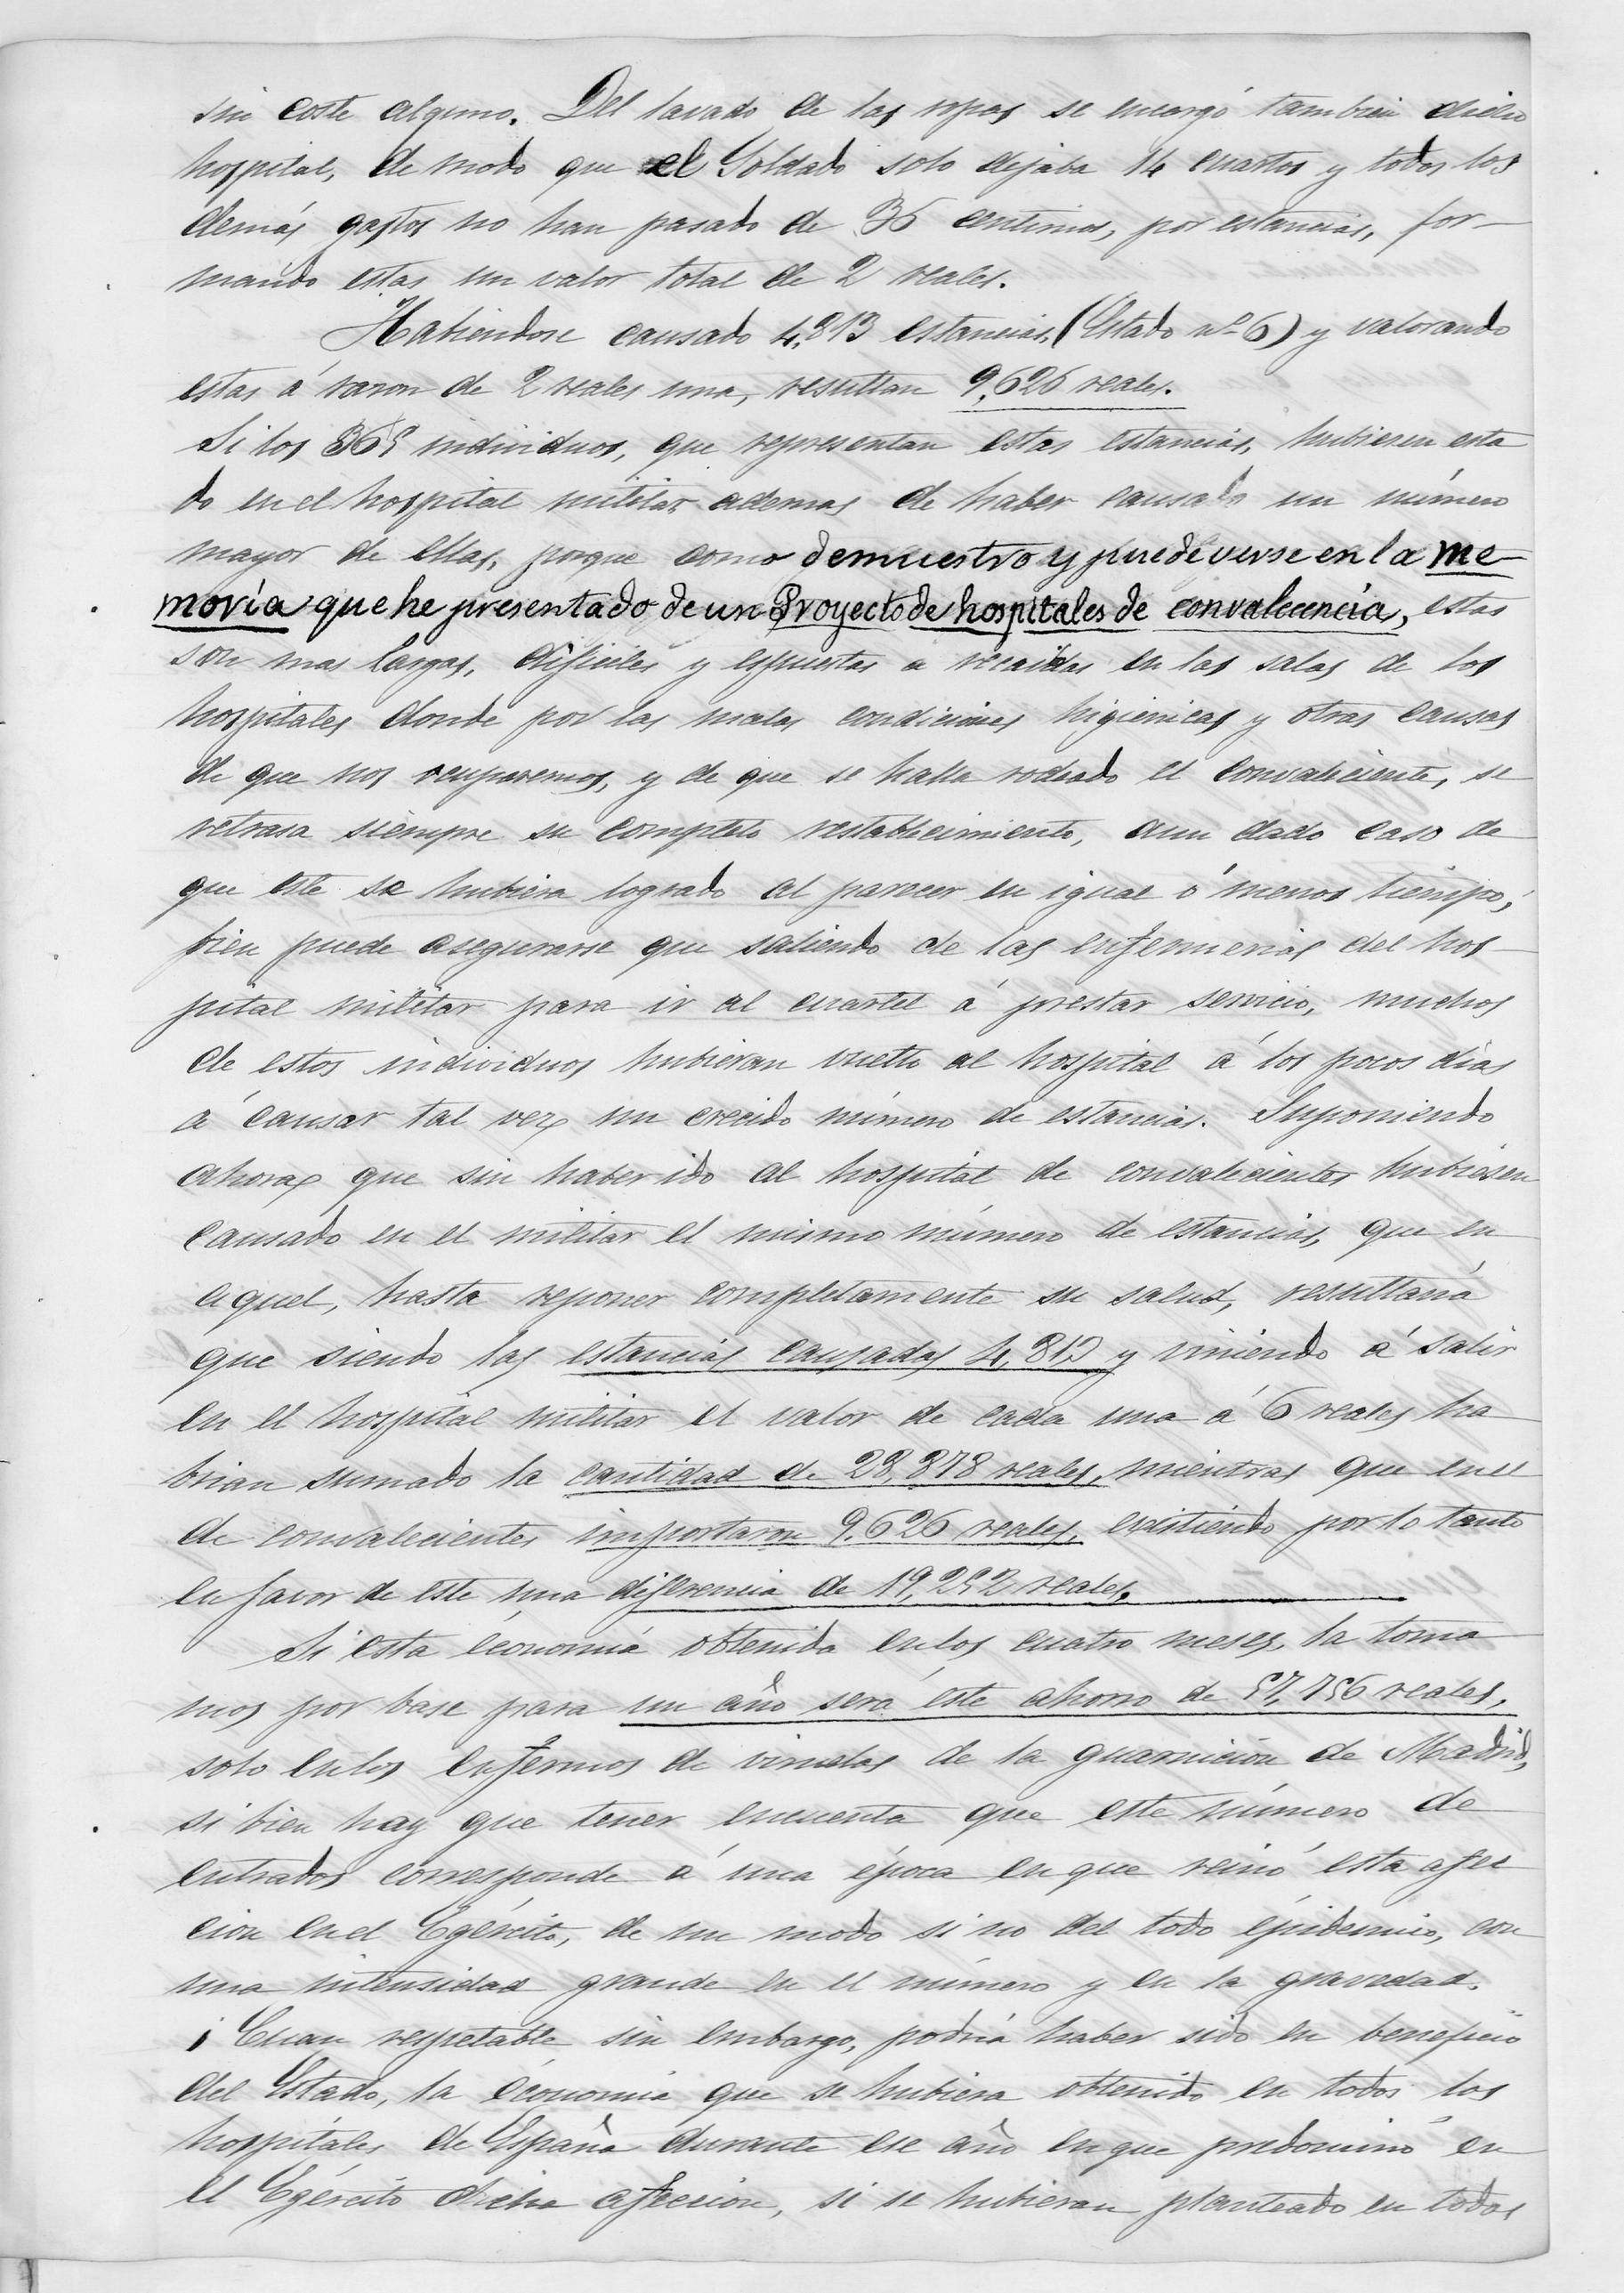 sin coste alguno. Del lavado de las ropas se encargó tambien dicho
hospital, de modo que el Soldado solo dejaba 14 cuartos y todos los
demás gastos no han pasado de 36 centimos, por estancias, for-
mando estas un valor total de 2 reales.
Habiendose causado 4,813 estancias, (Estado nº 6) y valorando
estas á razon de 2 reales una, resultan 9,626 reales.
Si los 365 individuos, que representan estas estancias, hubiesen esta
do en el hospital militar ademas de haber causado un número
mayor de ellas, porque como demuestro y puede verse en la me-
moria que he presentado de un Proyecto de hospitales de convalecencia, estas
son mas largas, dificiles y espuestas a recaidas en las salas de los
hospitales donde por las malas condiciones higienicas y otras causas
de que nos ocuparemos, y de que se halla rodeado el convaleciente, se
retrasa siempre su completo restablecimiento, aun dado caso de
que este se hubiera logrado al parecer en igual ó menos tiempo,
bien puede asegurarse que saliendo de las enfermerias del hos-
pital militar para ir al cuartel á prestar servicio, muchos
de estos individuos hubieran vuelto al hospital á los pocos dias
á causar tal vez un crecido número de estancias. Suponiendo
ahora que sin haber ido al hospital de convalecientes hubiesen
causado en el militar el mismo número de estancias, que en
aquel, hasta reponer completamente su salud, resultaria
que siendo las estancias causadas 4,813 y viniendo á salir
en el hospital militar el valor de cada una á 6 reales ha
brian sumado la cantidad de 28,878 reales, mientras que en el
de convalecientes importaron 9,626 reales, existiendo por lo tanto
en favor de este una diferencia de 19,252 reales.
Si esta économia obtenida en los cuatro meses, la toma
mos por base para un año será este ahorro de 57,756 reales,
solo en los enfermos de viruelas de la guarnicion de Madrid,
si bien hay que tener encuenta que este número de
entrados corresponde á una época en que reinó esta afec
cion en el Egército, de un modo si no del todo épidemico, con
una intensidad grande en el número y en la gravedad.
¡Cuan respetable sin embargo, podria haber sido en beneficio
del Estado, la économia que se hubiera obtenido en todos los
hospitales de España durante ese año en que predominó en
el Egército dicha afeccion, si se hubieran planteado en todos